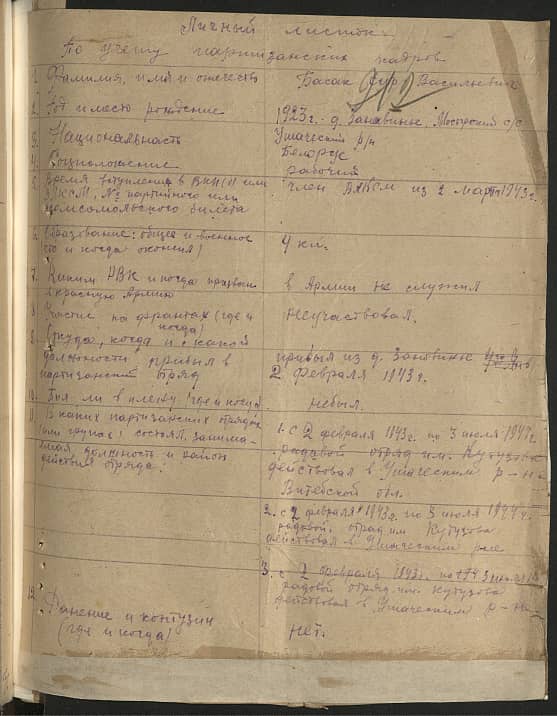 Личный листок
По учету партизанских кадров
1. Фамилия, имя и отчество Басак Васильевич
2. Год и место рождение 1923 г. д. Зановинье, с/с
Ушачский р/н
3. Национальность Белорус
4. Соцположение рабочий
5. Время вступления в ВКП(б) или член ВЛКСМ из 2 марта 1943 г.
ВЛКСМ, № партийного или
комсомольского билета
6. Образование: общее и военное 4 кл.
что и когда окончил)
7. Каким РВК и когда призван в Армии не служил
в красную Армию
8. Участие на фронтах (где и неучаствовал.
когда)
9. Откуда, когда и с какой
должности прибыл в прибыл из д. Зановинье
партизанский отряд 2 февраля 1943 г.
10. Был ли в плену (где и когда) небыл.
11. В каких партизанских отрядах
или группах состоял, занима- 1. с 2 февраля 1943 г. по 3 июля 1944 г.
емая должность и район рядовой отряд им. Кутузова
действия отряда: действовал в Ушачским р-не
Витебской обл.
2. с 2 февраля 1943 г. по 3 июля 1944 г.
рядовой отряд им Кутузова
действовал в Ушачским р-не
3. с 2 февраля 1943 г. по
рядовой отряд им. Кутузова
действовал в Ушачским р-не
12. Ранение и контузии нет.
(где и когда)